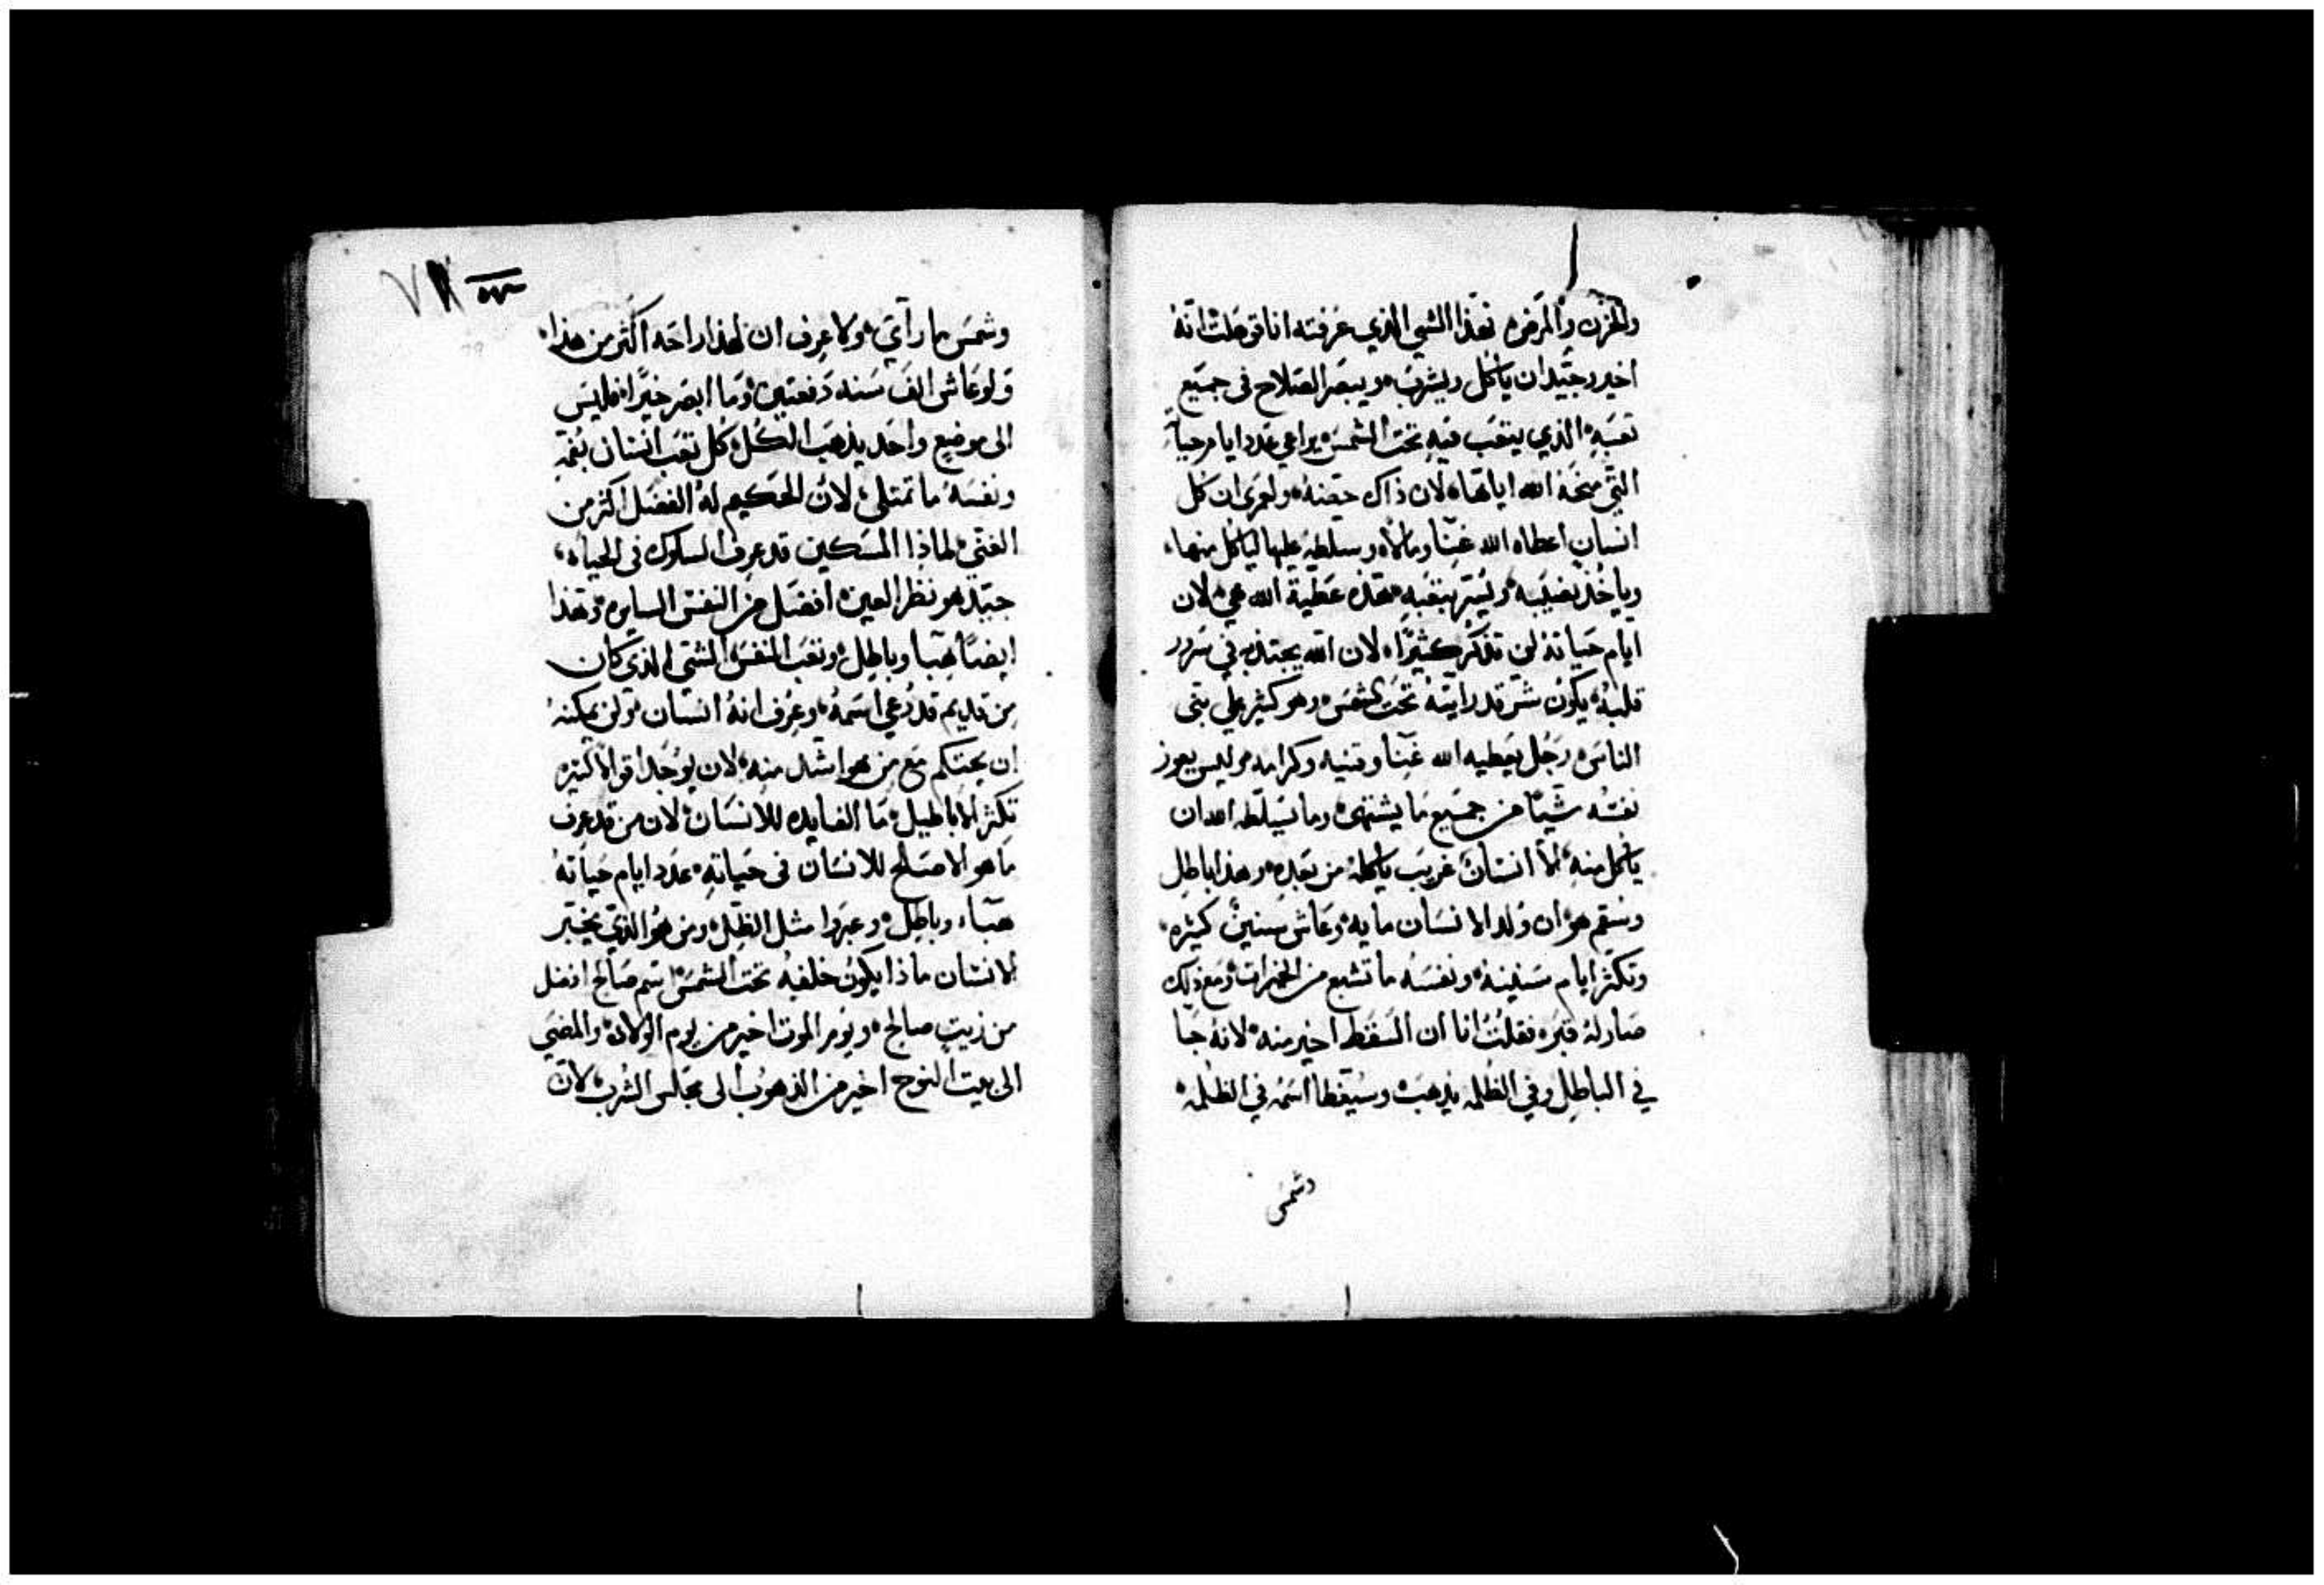 والحزن والمرض، فهذا الشي الذي عرفته انا قوجلت انه
اخير وجيد ان ياكل ويشرب، ويبصر الصلاح في جميع
تعبه الذي يتعب فيه تحت الشمس، يراعي عدد ايام حياته
التي منحه الله اياها، لان ذاك حصنه، ولعمري ان كل
انسان اعطاه الله غنا ومالا، وسلطه عليها لياكل منها،
وياخذ نصيبه، ويسر بتعبه، هذه عطية الله هي، لان
ايام حياته لن تذكر كثيرا، لان الله يجتذبه في سرور
قلبه، يكون شر قد رايته تحت الشمس، وهو كثير علي بني
الناس، رجل يعطيه الله غنا وقنيه وكرامه، وليس يعوز
نفسه شيا من جميع ما يشتهي، وما يسلطه الله ان
ياكل منه، الا انسان غريب ياكله من بعده، وهذا باطل
وسقم هو، ان ولد الانسان مايه، وعاش سنين كثيره،
وتكثر ايام سنينه، ونفسه ما تشبع من الخيرات، ومع ذلك
صار له قبر، فقلت انا ان السقط اخير منه، لانه جا
في الباطل وفي الظلمه يذهب، وسيغطا اسمه في الظلمه،
وشمس
وشمس ما رآي، ولا عرف ان لهذا راحه اكثر من هذا،
ولو عاش الف سنه دفعتين، وما ابصر خيرا، فليس
الى موضع واحد يذهب الكل، كل تعب انسان بفمه
ونفسه ما تمتلي، لان الحكيم له الفضل اكثر من
الغني، لماذا المسكين قد عرف السلوك في الحياه،
جيد هو نظر العين، افضل من النفس السايره، وهذا
ايضا هبا وباطل، وتعب النفس، الشي الذي كان
من قديم قد دعي اسمه، وعرف انه انسان، ولن يمكنه
ان يحتكم مع من هو اشد منه، لان يوجد اقوالا كثيره
تكثر الاباطيل، ما الفايده للانسان، لان من قد عرف
ما هو الاصلح للانسان في حياته، عدد ايام حياته
هباء وباطل، وعبروا مثل الظل، ومن هو الذي يخبر
الانسان ماذا يكون خلفه تحت الشمس، اسم صالح افضل
من زيت صالح، ويوم الموت اخير من يوم الولاده، والمضي
الى بيت النوح اخير من الذهوب الى مجلس الشرب، لان